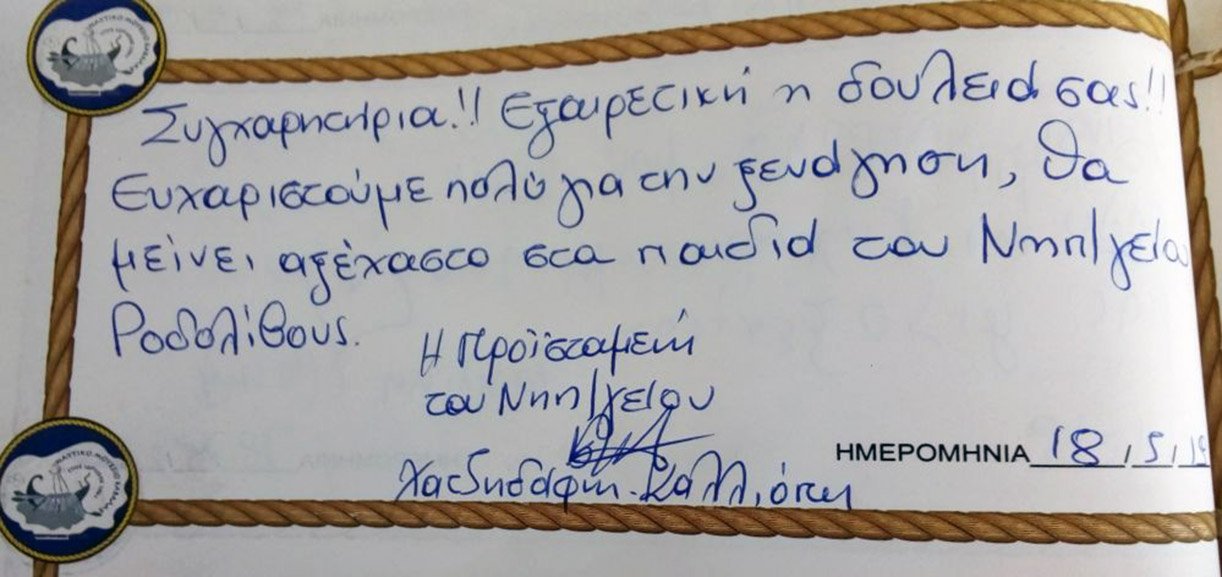 Συγχαρητήρια!! Εξαιρετική η δουλειά σας!!
Ευχαριστούμε πολύ για την ξενάγηση, θα
μείνει αξέχαστο στα παιδιά του Νηπ/γείου
Ροδολίβους.
Η Προϊσταμένη
του Νηπ/γείου
Καλλιόπη
ΗΜΕΡΟΜΗΝΙΑ 18/5/